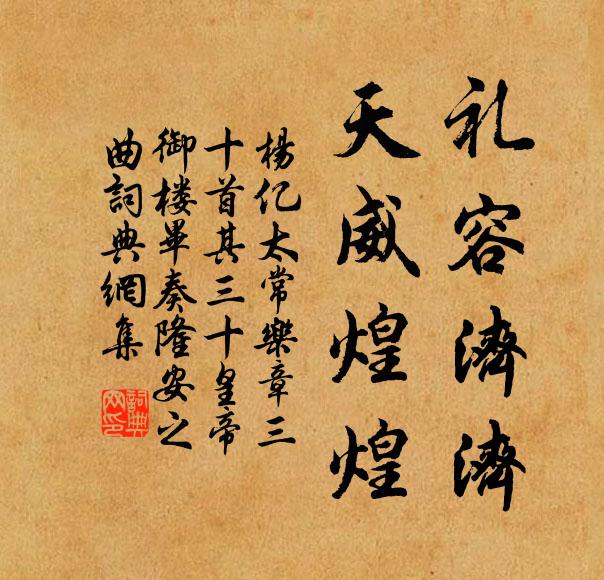 礼容濟濟
天威煌煌
楊亿太常樂章三
十首其三十皇帝
御楼畢奏隆安之
曲詞典網集
詞典网印